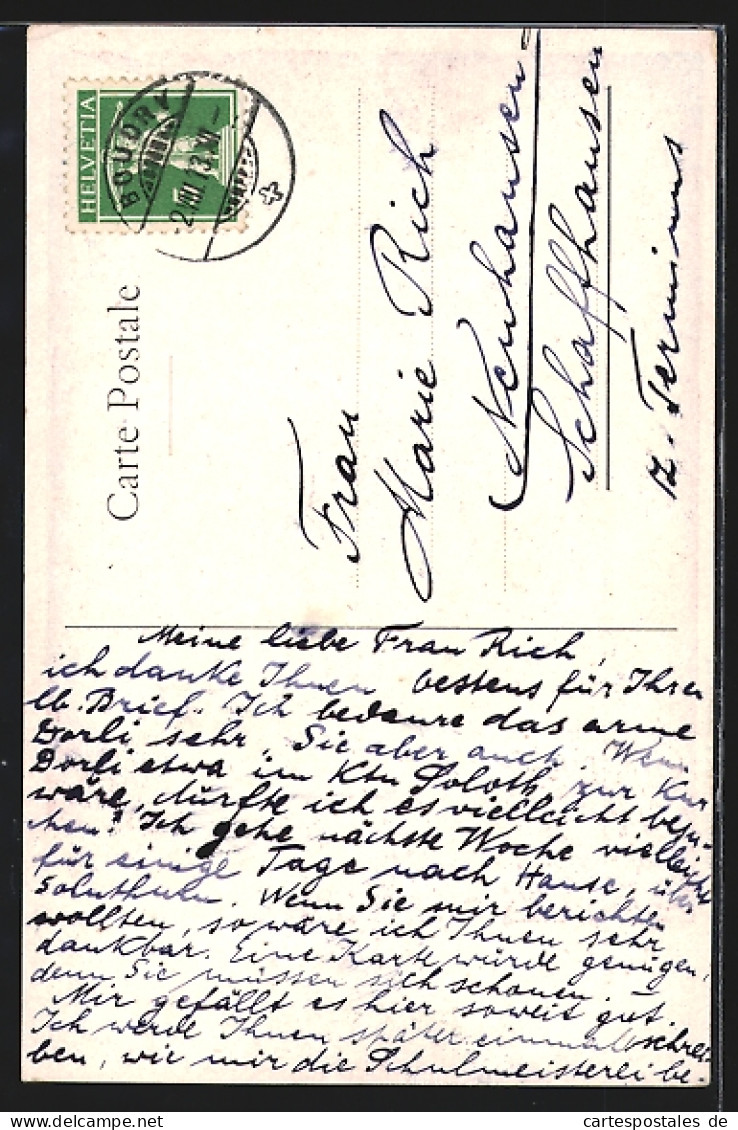 HELVETIA
BOUDRY
2.VIII.13.XI-
Carte Postale
Frau
Marie Rich
Neuhausen =
Schaffhausen
z. Terminus
Meine liebe Frau Rich,
ich danke Ihnen bestens für Ihren
lb. Brief. Ich bedaure das arme
Dorli sehr, Sie aber auch. Wenn
Dorli etwa im Ktn Soloth. zur Kur
wäre, dürfte ich es vielleicht besu-
chen? Ich gehe nächste Woche vielleicht
für einige Tage nach Hause, über
Soluthurn. Wenn Sie mir berichten
wollten, so wäre ich Ihnen sehr
dankbar. Eine Karte würde genügen,
denn Sie müssen sich schonen.
Mir gefällt es hier soweit gut.
Ich werde Ihnen später einmal schrei-
ben, wie mir die Schulmeisterei be-
www.cartespostales.de
cartespostales de